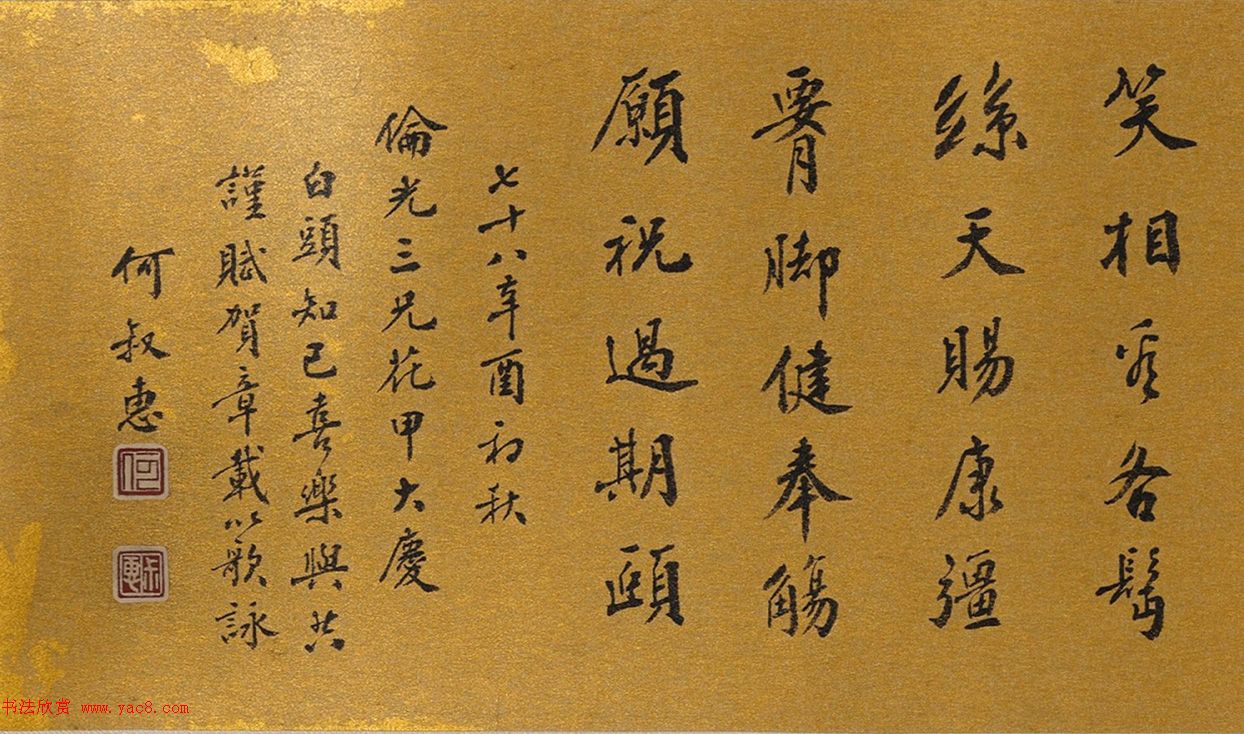 笑相看各鬢
絲天賜康彊
腰脚健奉觴
願祝過期頤
七十八辛酉初秋
倫光三兄花甲大慶
白頭知己喜樂與共
謹賦賀章載以歌詠
何叔惠
何
叔惠
书法欣赏 www.yac8.com